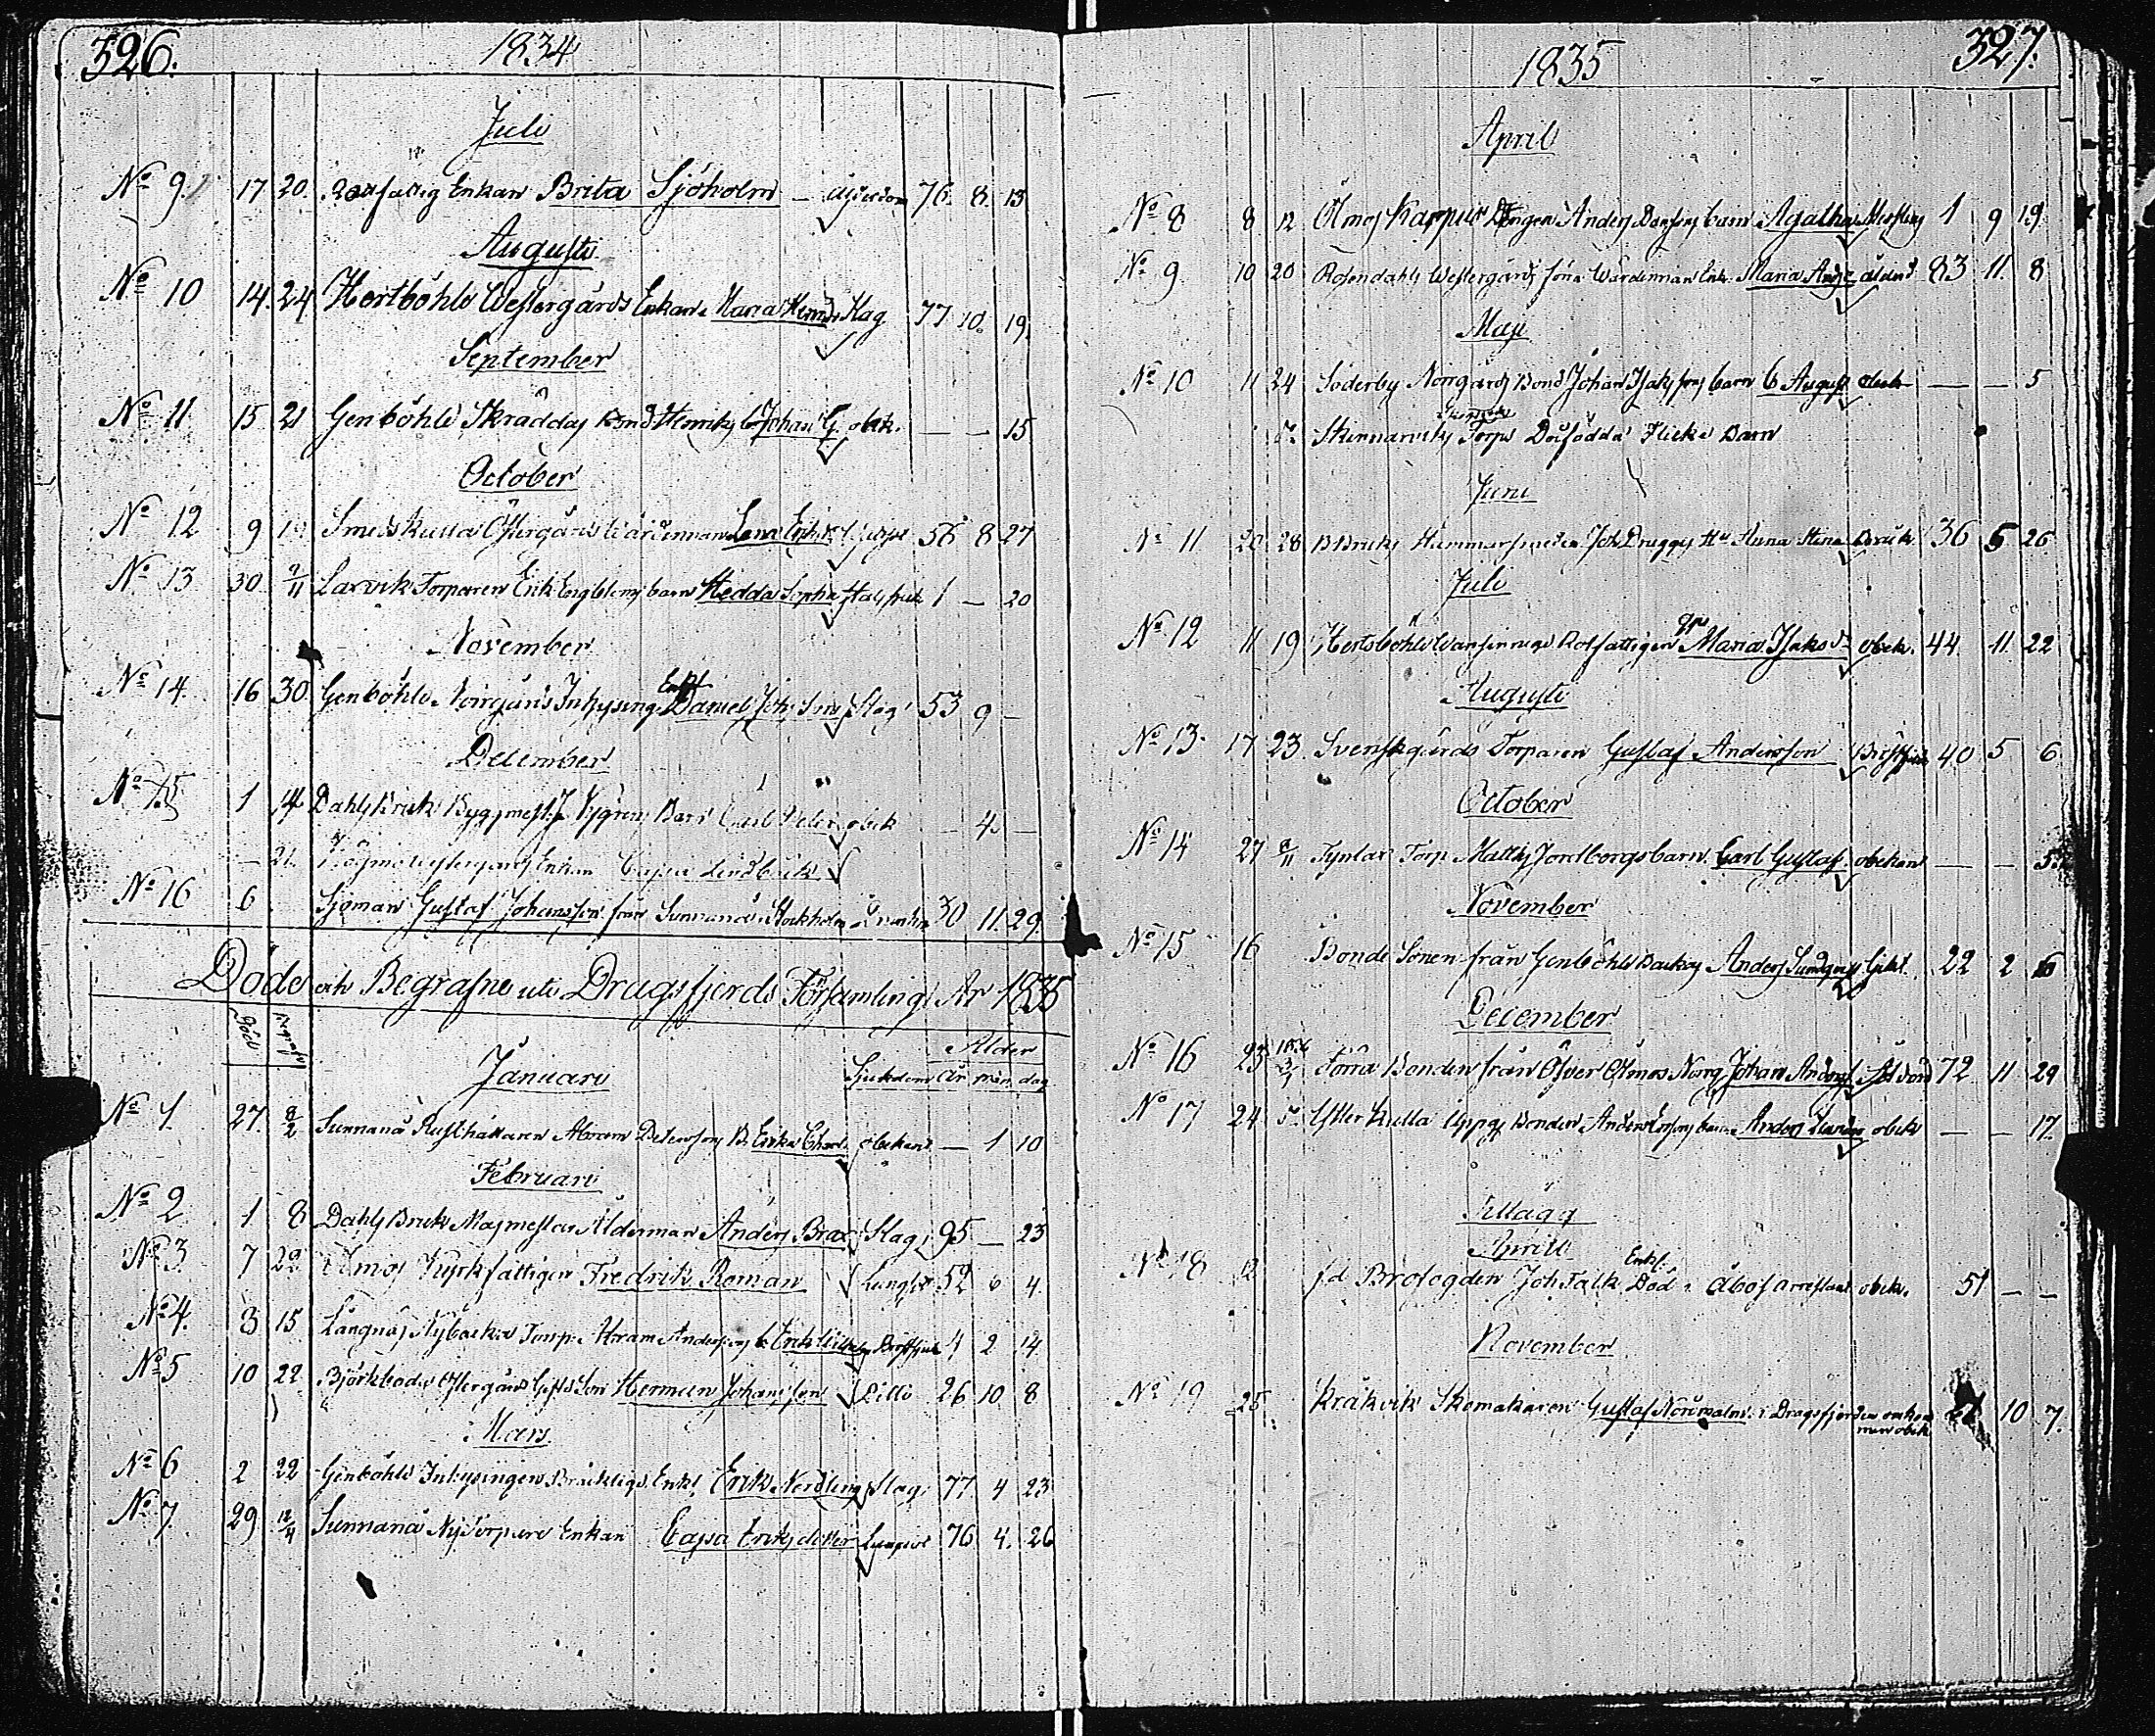 326.
1834
Juli
No 9. 17 20. Rotfattig Enkan Brita Sjöholm – ålderdom 76. 8. 13
Augusti
No 10 14. 24 Hertböhle Westergårds Enkan Maria Slag 77 10. 19.
September
No 11 15 21 Genböhle Skräddas Henriks b. Johan G. obek. — — 15
October
No 12 9 19 Smedskulla Östergårds Lena 56 8 27
No 13 30 9/11 Laxvik Torparen Erik barn Hedda Sophia Halssjuk 1 — 20
November
No 14. 16 30. Genböhle Norrgårds Inhysing Enkl Daniel Joh: Son Slag 53 9 –
December
No 15 1 14 Dahls Bruk Byggmest. J Nygrens Barn Carl Peter obek – 4. –
– 21. Enkan Cajsa Lindbäck
No 16 6 Sjöman Gustaf Johansson från Sunnanå i Stockholm 30 11. 29.
Döde och Begrafne uti Dragsfjerds Församling År 1835
Död Begrafn
Januari Sjukdom Ålder år mån. dag
No 1. 27. 8/2 Sunnanå Rusthållaren Abram Petersons B. Erika Charl. obekant — 1 10
Februari
No 2 1 8 Dahls Bruk Masmestar Ålderman Anders Brax Slag 95 — 23
No 3 7 22 Ölmos Kyrkfattigen Fredrik Roman Lungsot 52 6 4.
No 4. 8 15 Långnäs Nybacka Torp. Abram Anderssons b. Erik Wilhelm Bröstsjuk 4 2 14.
No 5 10 22 Björkboda Östergårds Son Herman Johansson Ditto 26 10 8
Mars
No 6 2 22 Genböhle Inhysingen Bräcklige Enkl. Erik Nordling Slag 77 4 23
No 7. 29 12/4 Sunnanå Ny Torpare Enkan Cajsa Eriksdotter Lungsot 76 4. 26
1835
327.
April
No 8 8 12 Ölmos Karpus Drängen Anders barn Agatha 1 9 19.
No 9 10 20 Rosendahls Westergårds förra Enk. Maria ålderd 83 11. 8
Maji
No 10 11 24 Söderby Norrgårds Bond. Johan Isaksons barn b August obek — — 5
Skinnarviks Torps Dödfödda Flicke Barn
Juni
No 11 20 28 B Bruks Hammarsmeden Joh Druggs Hu Anna Stina 36 5 26
Juli
No 12 11 19 Hertsböhle Wansinnige Rotfattigen Maria Isaksdr obek. 44. 11. 22
Augusti
No 13. 17 23. Svenskgårds Torparen Gustaf Andersson Bröstsjuk 40 5 6
October
No 14 27 8/11 Torp Matts Jordborgs barn. Carl Gustaf obekant — — 5.
November
No 15 16 Bonde Sonen från Genböhle Backas Anders Sundqvist 22 2 16
December
No 16 23 1836 3/1 Förra Bonden från Öfver Ölmos Norrg. Johan 72 11 29
No 17 24. 3. Ytter Kulla Uppg. Bonden Anders barn Anders obek — — 17.
Tillägg
April
No 18 12 f.d. Brofogden Joh Falk Enkl. Död i Åbo Arrestant obek. 51 — —
November
No 19 25. Kråkvik Skomakaren Gustaf Norrmalm i Dragsfjerden omkommen obek 10 7.